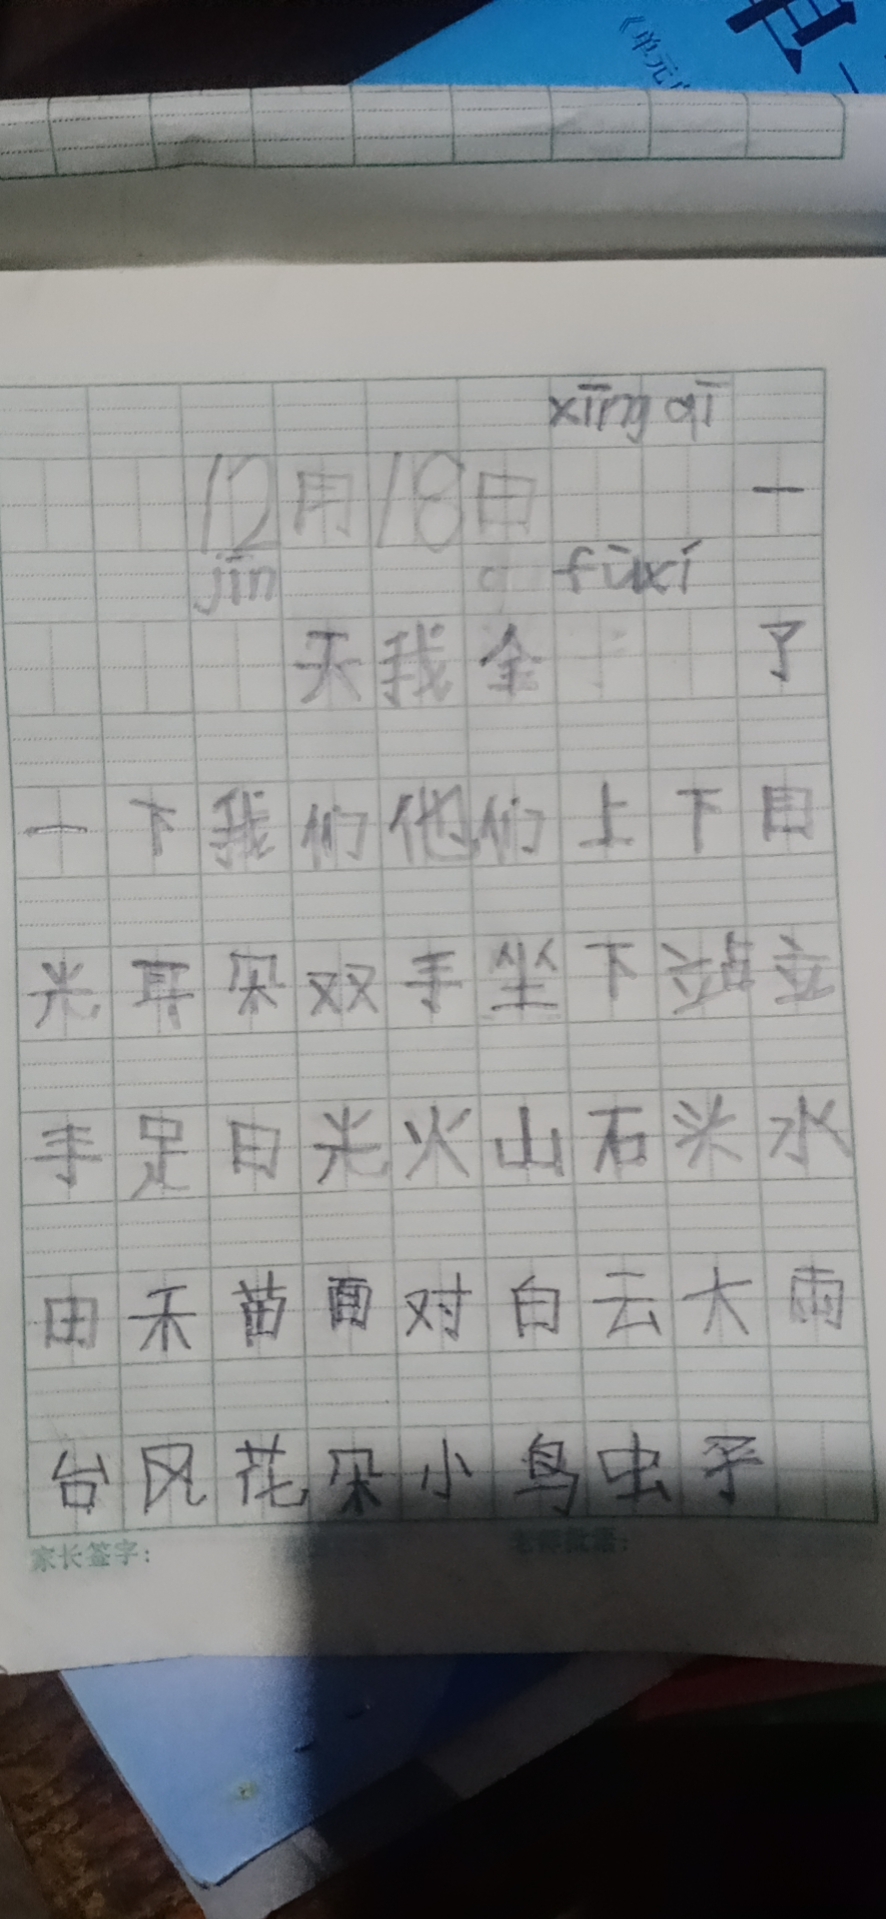 《单元
xīng qī
12月18日 一
jīn fùxí
天我 了
一下我们他们上下目
光耳朵双手坐下站立
手足日光火山石头水
田禾苗面对白云大雨
台风花朵小鸟虫子
家长签字：